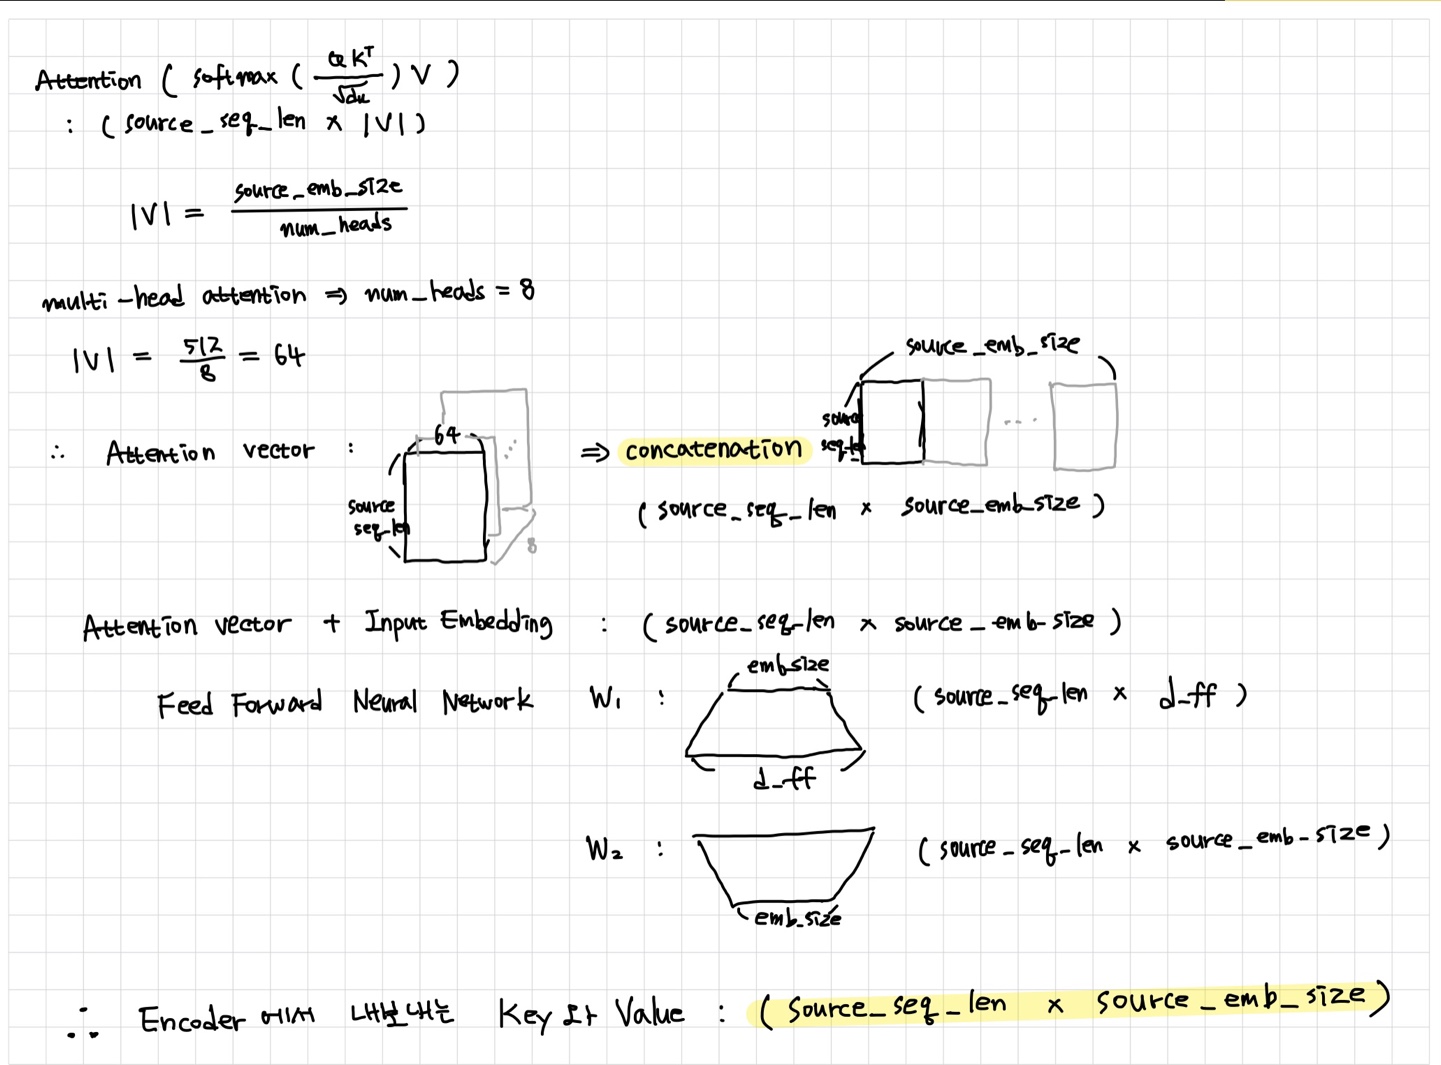 Attention ( softmax ( QK^T / √dk ) V )
: ( source_seq_len × |V| )
|V| = source_emb_size / num_heads
multi-head attention ⇒ num_heads = 8
|V| = 512 / 8 = 64
source_emb_size
∴ Attention vector : 64 source seq_len 8 ⇒ concatenation source seq_le
( source_seq_len × source_emb_size )
Attention vector + Input Embedding : ( source_seq_len × source_emb_size )
emb_size
Feed Forward Neural Network W₁ : ( source_seq_len × d_ff )
d_ff
W₂ : ( source_seq_len × source_emb_size )
emb_size
∴ Encoder에서 내보내는 Key와 Value : ( source_seq_len × source_emb_size )